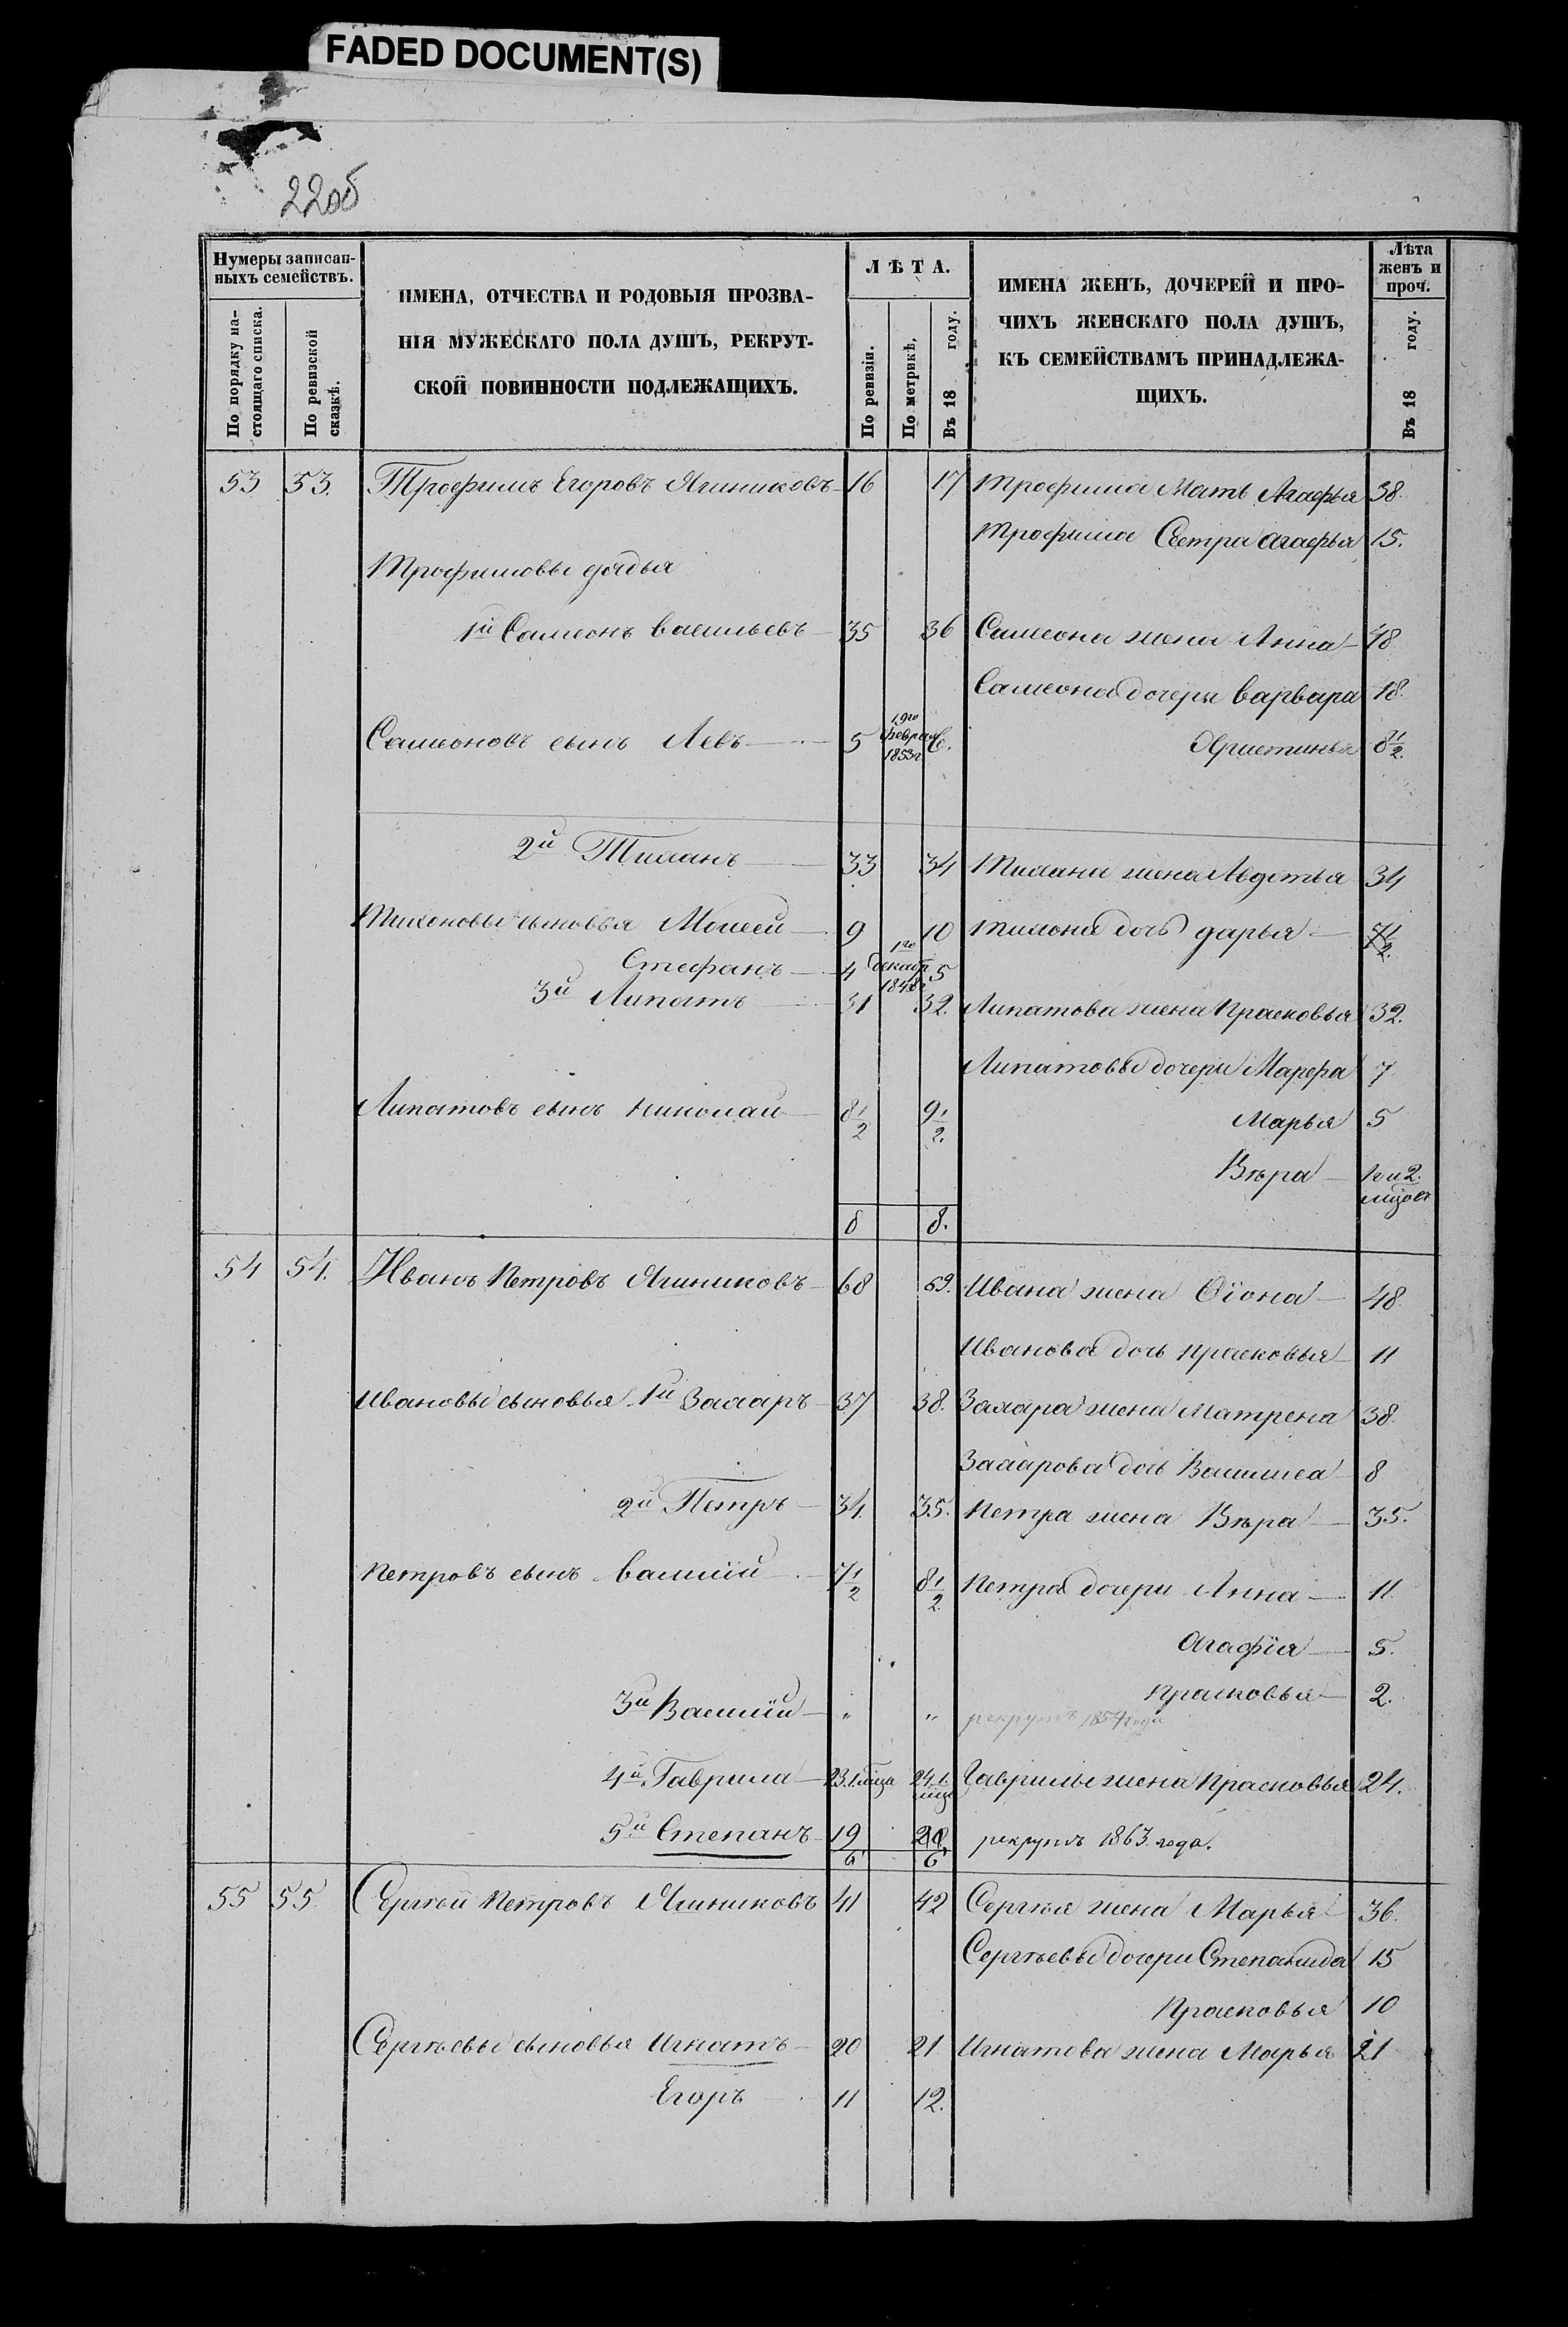 FADED DOCUMENT(S)
22об
Нумеры записан-
ныхъ семействъ.
По порядку на-
стоящаго списка.
По ревизской
сказкѣ.
ИМЕНА, ОТЧЕСТВА И РОДОВЫЯ ПРОЗВА-
НІЯ МУЖЕСКАГО ПОЛА ДУШЪ, РЕКРУТ-
СКОЙ ПОВИННОСТИ ПОДЛЕЖАЩИХЪ.
ЛѢТА.
По ревизіи.
По метрикѣ,
Въ 18 году.
ИМЕНА ЖЕНЪ, ДОЧЕРЕЙ И ПРО-
ЧИХЪ ЖЕНСКАГО ПОЛА ДУШЪ,
КЪ СЕМЕЙСТВАМЪ ПРИНАДЛЕЖА-
ЩИХЪ.
Лѣта
женъ и
проч.
Въ 18 году.
53 53. Трофимъ Егоровъ 16 17 Трофима Мать Агафья 38.
Трофима Сестра агафья 15.
Трофимовы дядья
1й Самсонъ васильевъ 35 36 Самсона жена Анна
Самсона дочери варвара 18.
Самсоновъ сынъ Левъ 5 19го февра 1853г 6. Христинья 8 1/2.
2й Тиханъ 33 34 Тихана жена Авдотья 34
Тихоновы сыновья Моисей 9 10 Тихона дочь дарья 7 1/2.
Стефанъ 4 1го декабр 5
3й Липатъ 31 32. Липатова жена Прасковья 32.
Липатовы дочери Марфа 7.
Липатовъ сынъ николай 8 1/2 9 1/2. Марья 5
Вѣра 1 и 2. мѣцовъ
8 8.
54 54. Иванъ Петровъ 68 69. Ивана жена Ѳіона 48.
Иванова дочь прасковья 11
Ивановы сыновья 1й Захаръ 37 38. Захара жена Матрена 38.
Захарова дочь Василиса 8
2й Петръ 34. 35. Петра жена Вѣра 35.
Петровъ сынъ василій 7 1/2 8 1/2 Петра дочери Анна 11.
Агафія 5.
Прасковья 2.
3й Василій " " рекрутъ 1854 года
4й Гаврила 23. 1 мѣца 24. 1 мѣца Гаврилы жена Прасковья 24.
5й Степанъ 19 20 рекрутъ 1863. года.
6 6
55 55 Сергѣй Петровъ 41 42 Сергѣя жена Марья 36.
Сергѣевы дочери Степанида 15
Прасковья 10
Сергѣевы сыновья Игнатъ 20 21. Игнатова жена Марья 21
Егоръ 11 12.